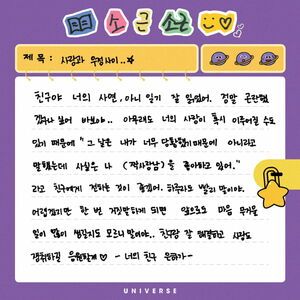 소근소근
제목: 사랑과 우정사이..☆
친구야 너의 사연, 아니 일기 잘 읽었어. 정말 곤란했
겠구나 보여 바보야.. 아무래도 너의 사랑이 혹시 이루어질 수도
있기 때문에 "그 날은 내가 너무 당황했기 때문에 아니라고
말했는데 사실은 나 (짝사랑남)을 좋아하고 있어."
라고 친구에게 전하는 것이 좋겠어. 하루라도 빨리 말이야.
어렵겠지만 한 번 거짓말하게 되면 앞으로도 마음 무거울
일이 많이 생길지도 모르니 말이야.. 친구랑 잘 해결하고 사랑도
쟁취하길 응원할게♡ - 너의 친구 은하가 -
UNIVERSE